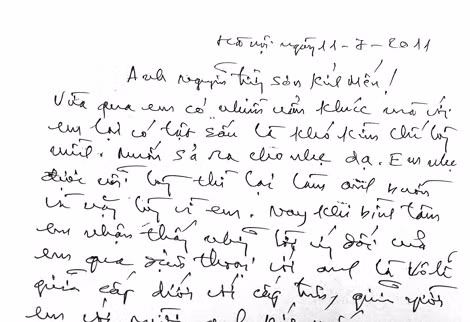 Hà nội ngày 11-7-2011
Anh Nguyễn Thùy Sơn kính mến!
Vừa qua em có nhiều uẩn khúc mà với
em lại có tật xấu là khó kìm chế bực
mình. Muốn sả ra cho nhẹ dạ. Em nhẹ
được với bực thì lại làm anh buồn
và vậy bực vì em. Nay khi bình tâm
em nhận thấy những lời ấy đối của
em qua điện thoại với anh là vô lễ
giữa cấp dưới với cấp trên, giữa người
em với người anh